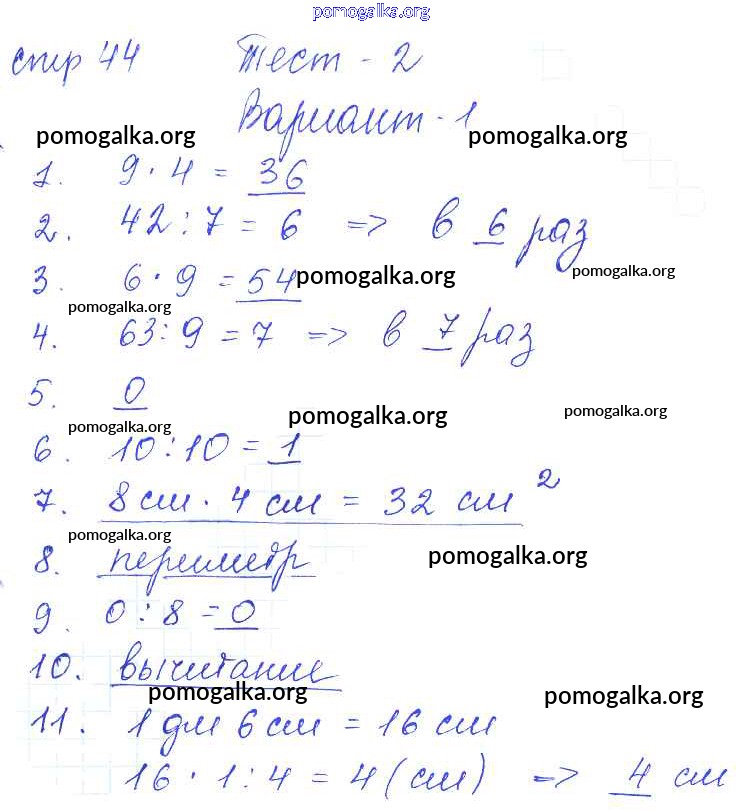 pomogalka.org
стр 44 Тест - 2
Вариант - 1
pomogalka.org pomogalka.org
1. 9 · 4 = 36
2. 42 : 7 = 6 => в 6 раз
3. 6 · 9 = 54 pomogalka.org pomogalka.org
pomogalka.org
4. 63 : 9 = 7 => в 7 раз
5. 0
pomogalka.org pomogalka.org pomogalka.org
6. 10 : 10 = 1
7. 8 см · 4 см = 32 см²
pomogalka.org
8. периметр pomogalka.org
9. 0 : 8 = 0
10. вычитание
pomogalka.org pomogalka.org
11. 1 дм 6 см = 16 см
16 · 1 : 4 = 4 (см) => 4 см